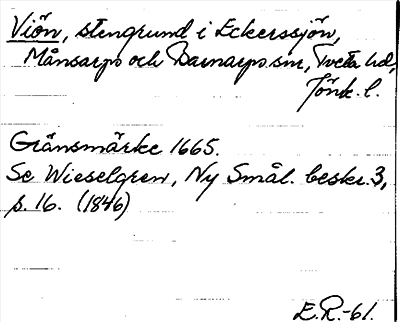 Viön, stengrund i Eckerssjön,
Månsarps och Barnarps snr, Tveta hd,
Jönk. l.
Gränsmärke 1665.
Se Wieselgren, Ny Smål. beskr. 3,
s. 16. (1846)
E.R.-61.